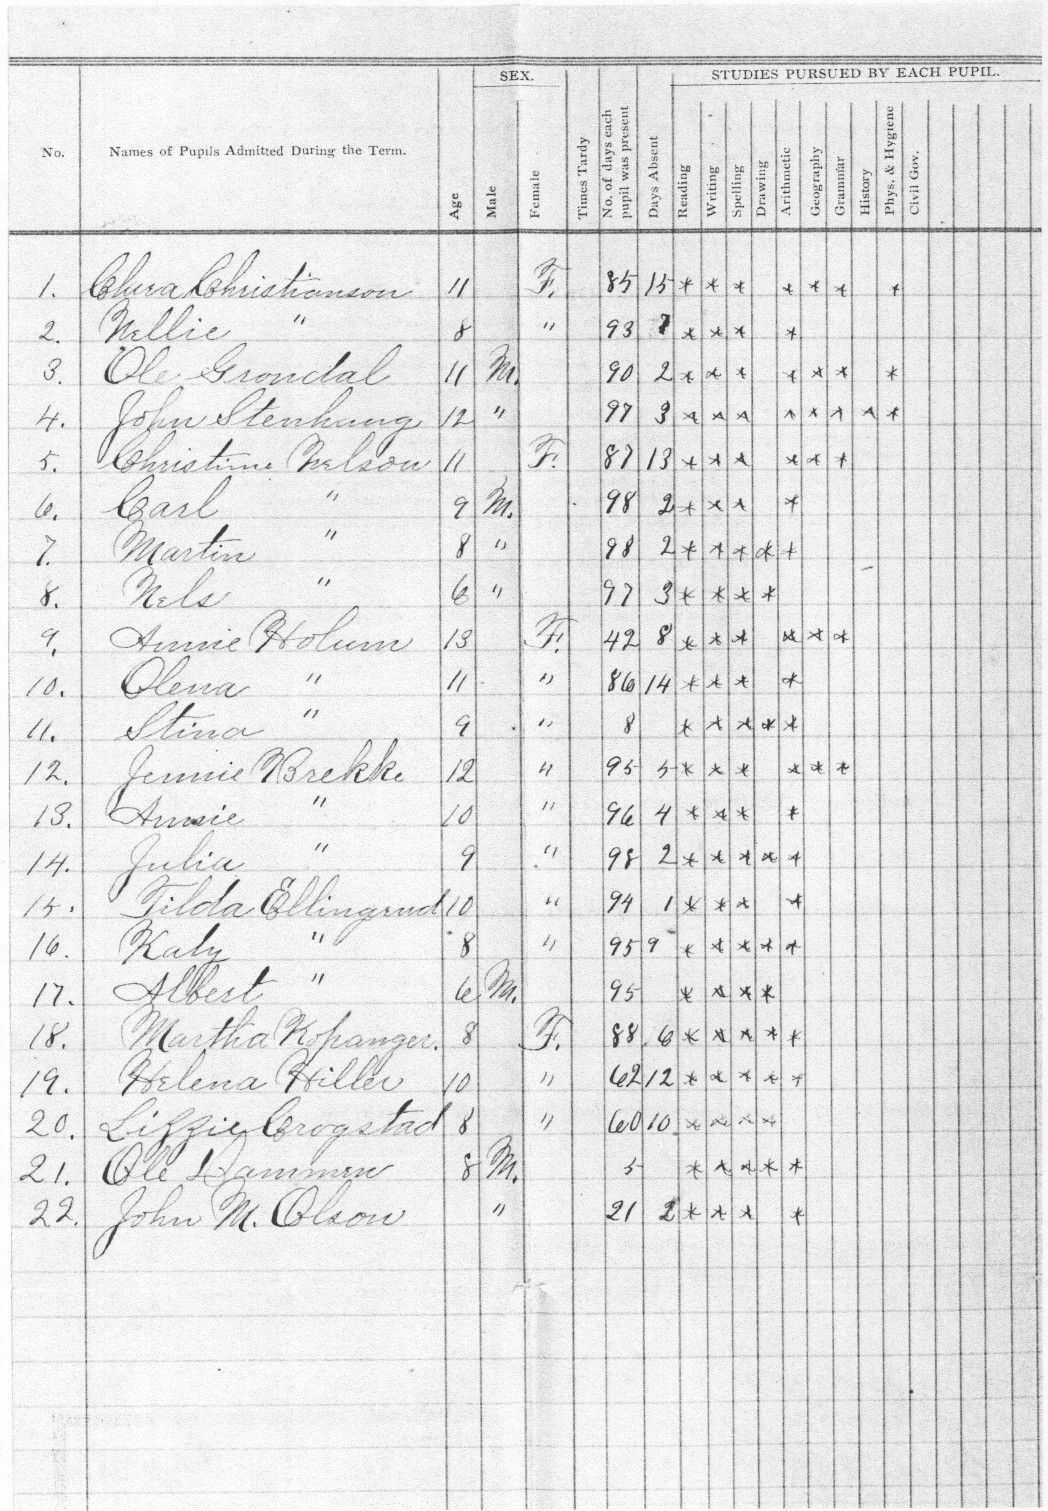 SEX. STUDIES PURSUED BY EACH PUPIL.
No. Names of Pupils Admitted During the Term. Age Male Female Times Tardy No. of days each pupil was present Days Absent Reading Writing Spelling Drawing Arithmetic Geography Grammar History Phys. & Hygiene Civil Gov.
1. Clara Christianson 11 F. 85 15 * * * * * * *
2. Nellie " 8 " 93 7 * * * *
3. Ole Grondal 11 M. 90 2 * * * * * * *
4. John Stenhaug 12 " 97 3 * * * * * * * *
5. Christine Nelson 11 F. 87 13 * * * * * *
6. Carl " 9 M. 98 2 * * * *
7. Martin " 8 " 98 2 * * * * *
8. Nels " 6 " 97 3 * * * *
9. Annie Holum 13 F. 42 8 * * * * * *
10. Olena " 11 " 86 14 * * * *
11. Stina " 9 " 8 * * * * *
12. Jennie Brekke 12 " 95 5 * * * * * *
13. Annie " 10 " 96 4 * * * *
14. Julia " 9 " 98 2 * * * * *
15. Tilda Ellingrud 10 " 94 1 * * * *
16. Katy " 8 " 95 9 * * * * *
17. Albert " 6 M. 95 * * * *
18. Martha Kopanger. 8 F. 88 6 * * * * *
19. Helena Hiller 10 " 62 12 * * * * *
20. Lizzie Crogstad 8 " 60 10 * * * *
21. Ole Hammen 8 M. 5 * * * * *
22. John M. Olson " 21 2 * * * *